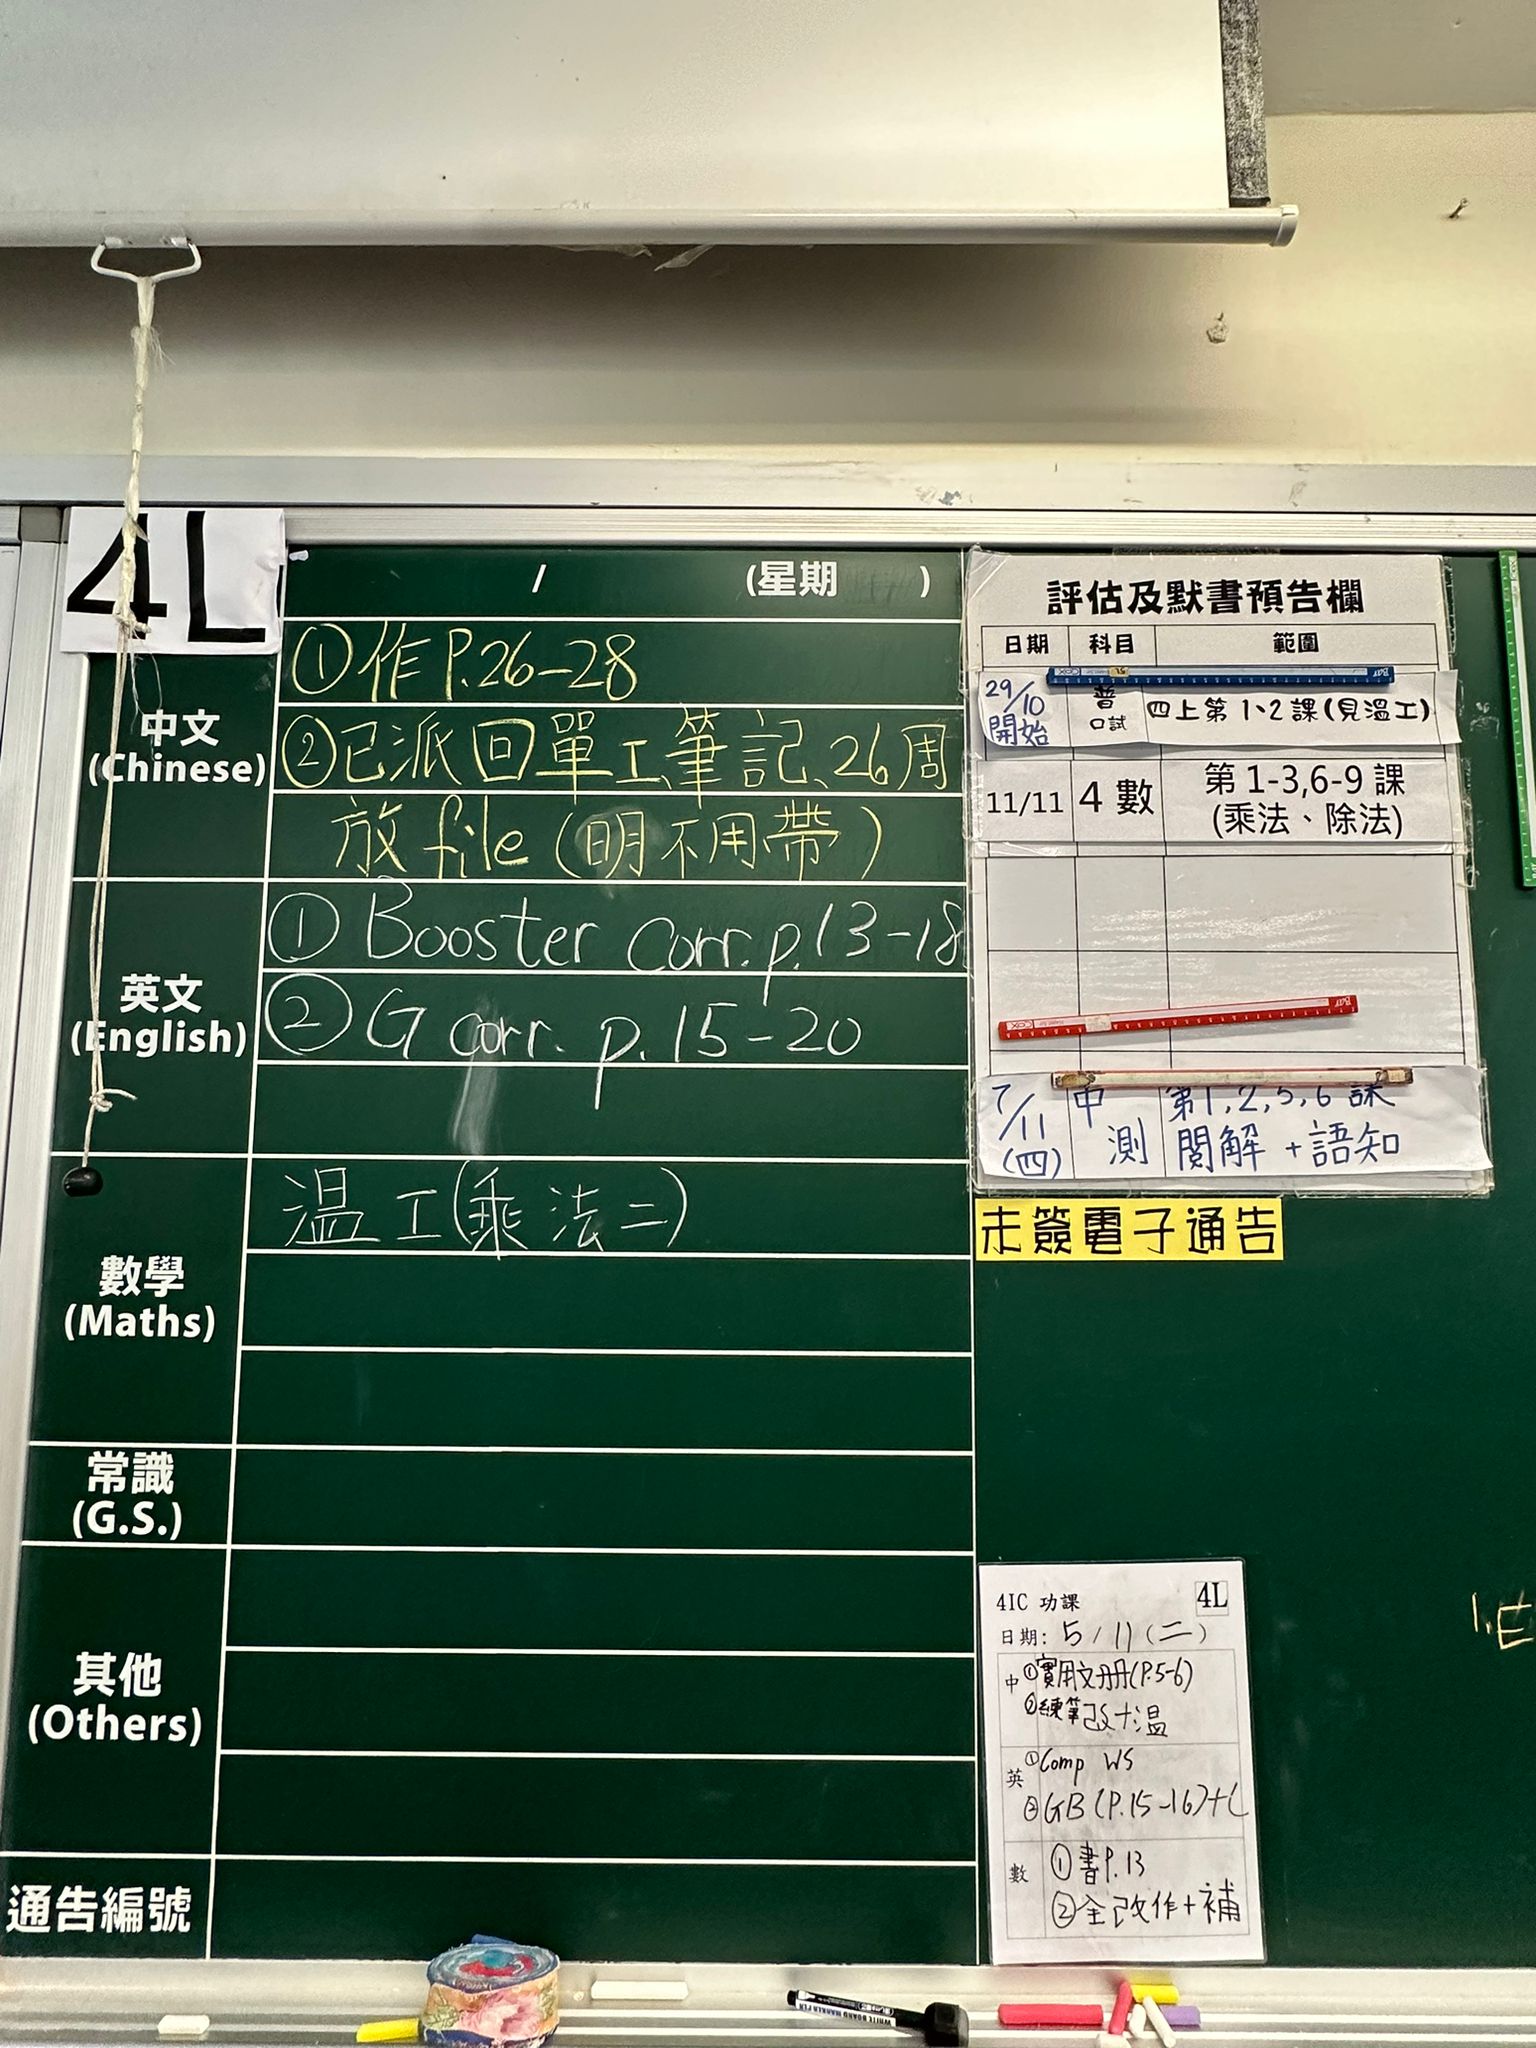 4L
/ (星期 )
中文
(Chinese)
①作P.26-28
②已派回單工、筆記、26周
放file(明不用帶)
英文
(English)
① Booster corr. p.13-18
② G corr. p.15-20
數學
(Maths)
温工(乘法二)
常識
(G.S.)
其他
(Others)
通告編號
評估及默書預告欄
日期 科目 範圍
29/10 開始 普 口試 四上第1、2課(見温工)
11/11 4數 第1-3,6-9課
(乘法、除法)
7/11 (四) 中測 第1,2,5,6課
閱解+語知
未簽電子通告
4IC 功課 4L
日期: 5/11(二)
中 ①實用文册(P.5-6)
②練筆改+温
英 ①Comp WS
②GB(P.15-16)+C
數 ①書P.13
②全改作+補
WHITE BOARD MARKER PEN